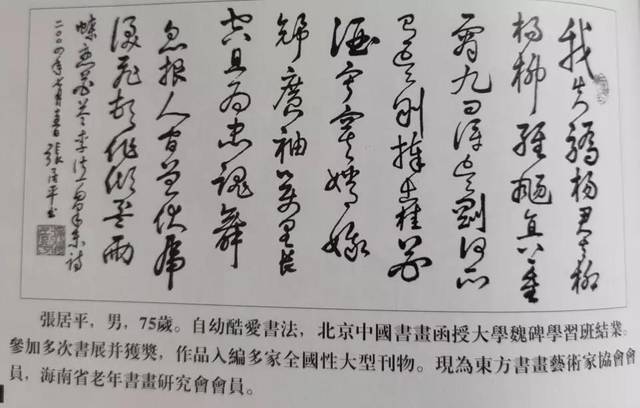 我失驕楊君失柳
楊柳輕颺直上重
霄九問訊吳剛何所
有吳剛捧出桂花
酒寂寞嫦娥
舒廣袖萬里長
空且為忠魂舞
忽報人間曾伏虎
淚飛頓作傾盆雨
蝶恋花答李淑一詩
二〇〇四年張居平书
張居平，男，75歲。自幼酷愛書法，北京中國書畫函授大學魏碑學習班結業。
參加多次書展并獲獎，作品入編多家全國性大型刊物。現為東方書畫藝術家協會會
員，海南省老年書畫研究會會員。